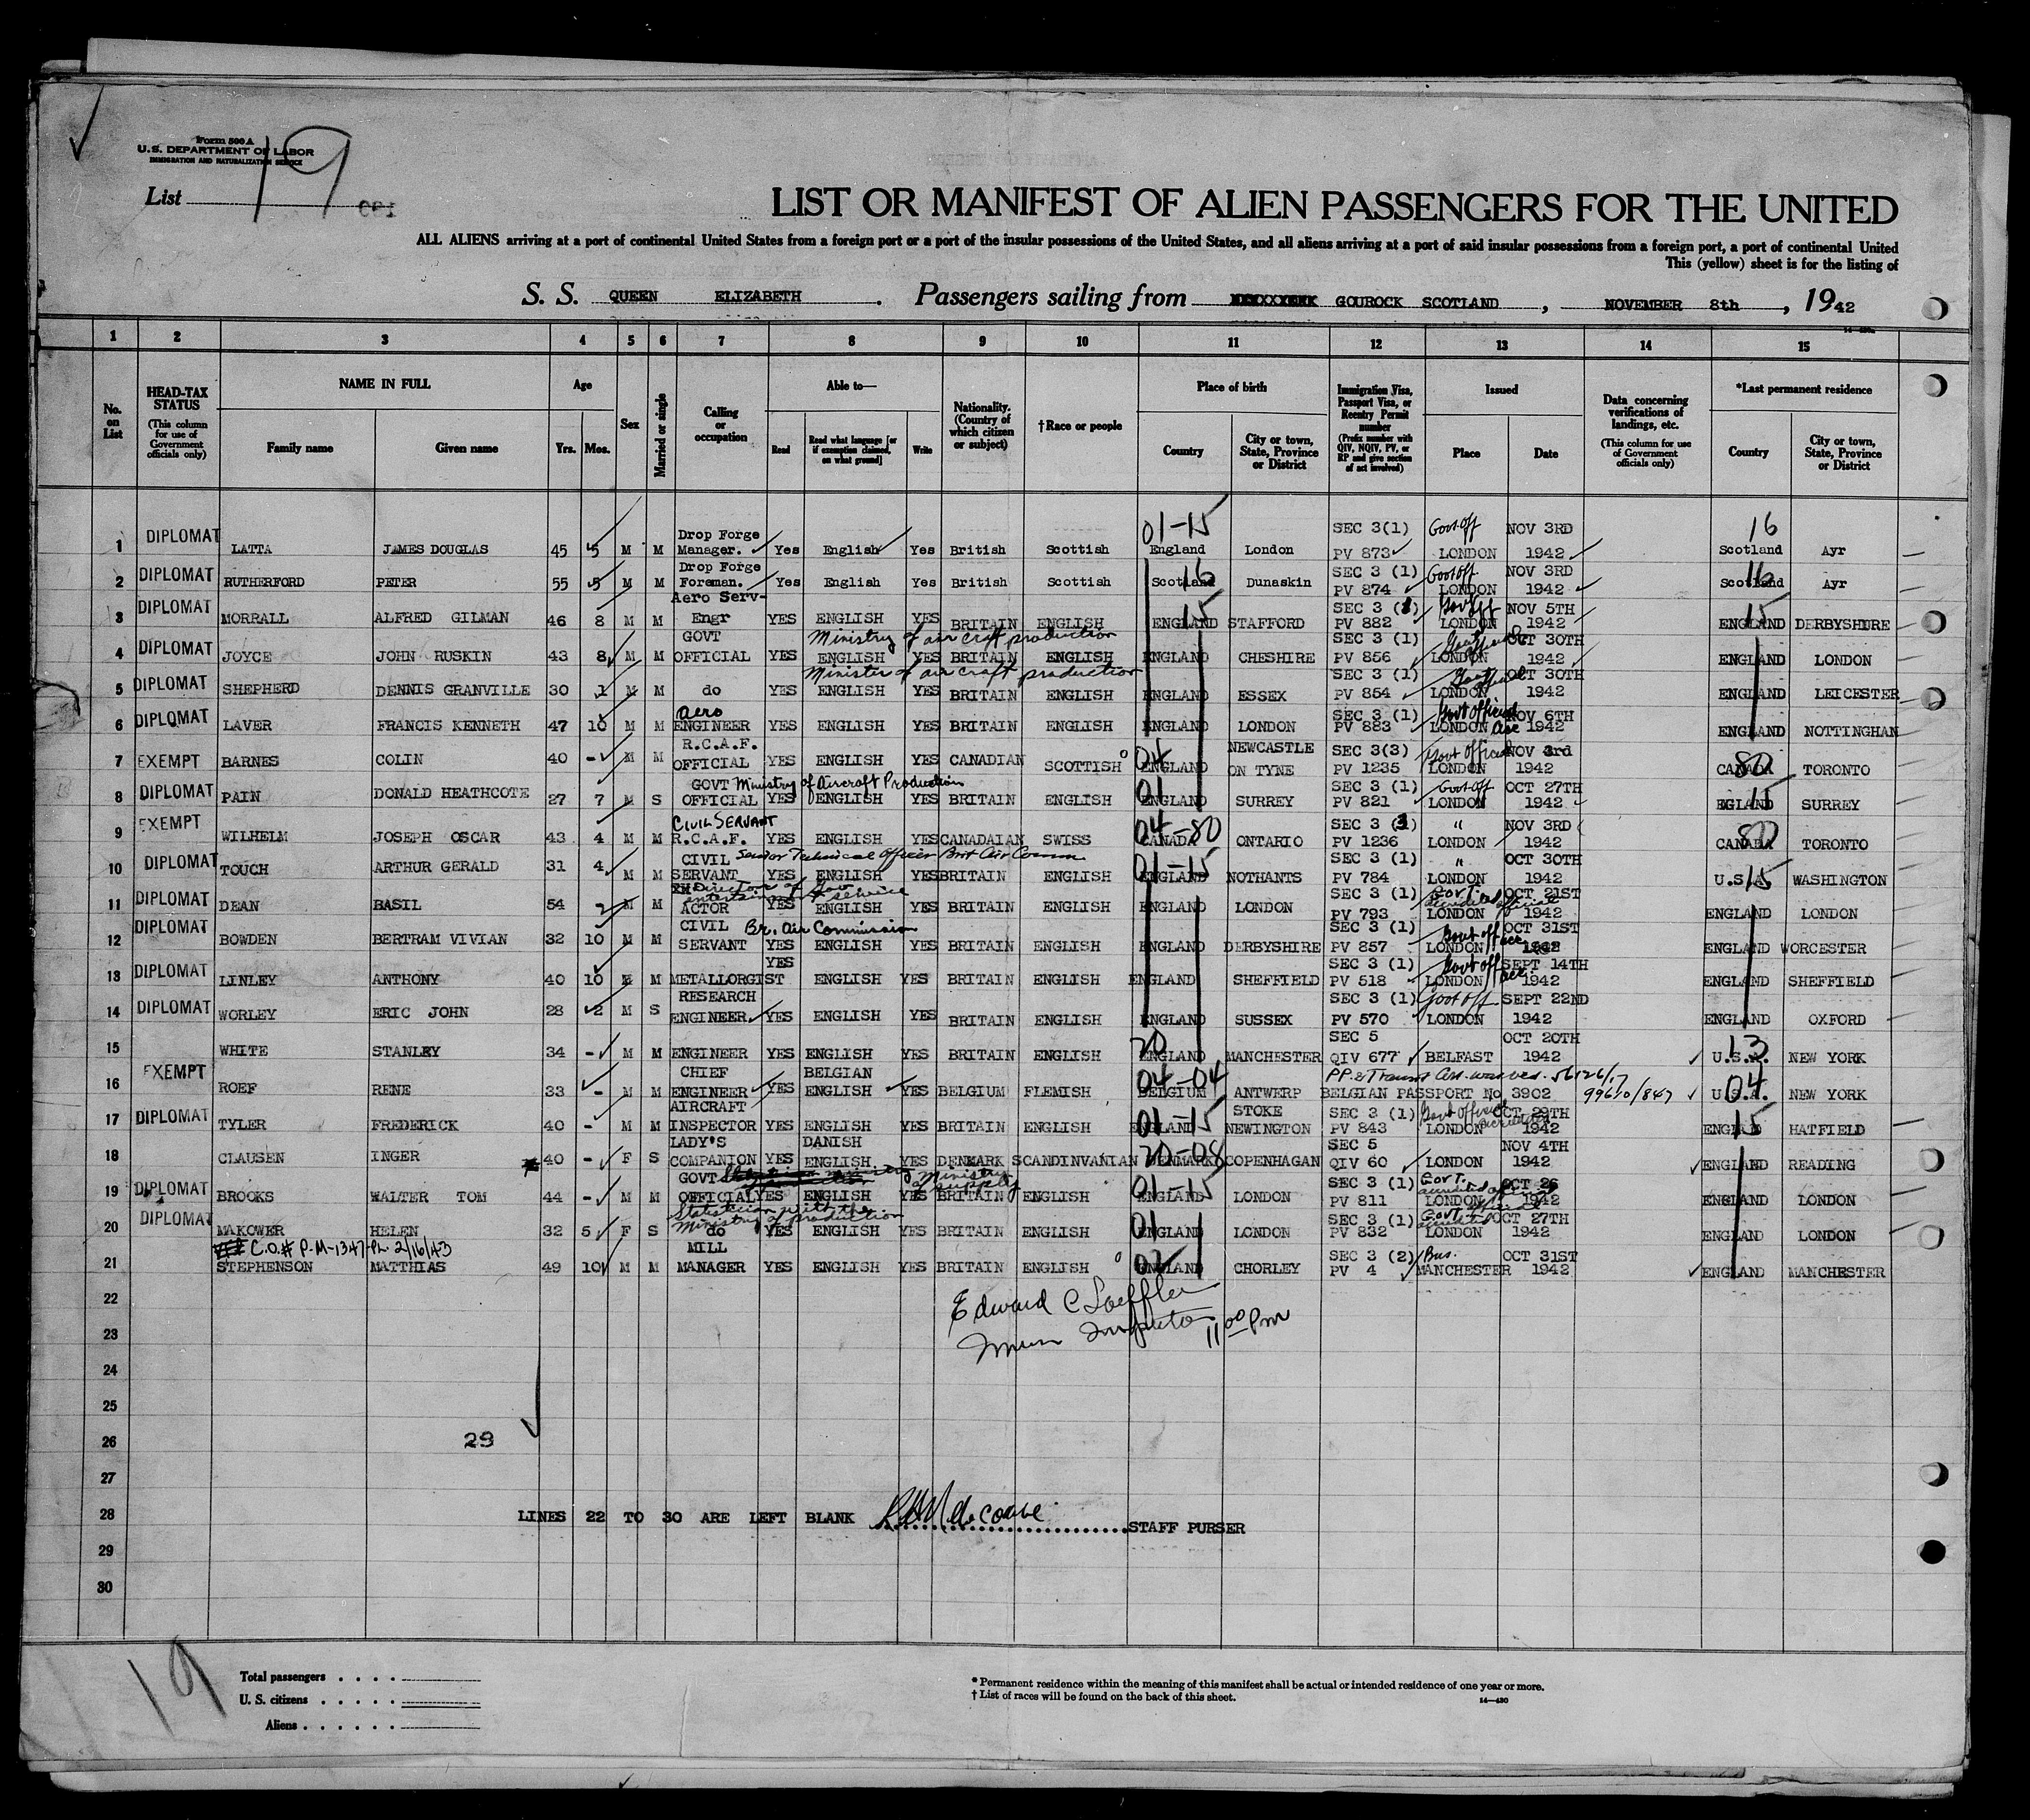 Form 500 A
U.S. DEPARTMENT OF LABOR
IMMIGRATION AND NATURALIZATION SERVICE
List 19
LIST OR MANIFEST OF ALIEN PASSENGERS FOR THE UNITED
ALL ALIENS arriving at a port of continental United States from a foreign port or a port of the insular possessions of the United States, and all aliens arriving at a port of said insular possessions from a foreign port, a port of continental United
This (yellow) sheet is for the listing of
S. S. QUEEN ELIZABETH . Passengers sailing from GOUROCK SCOTLAND , NOVEMBER 8th , 1942
1 2 3 4 5 6 7 8 9 10 11 12 13 14 15
No. on List
HEAD-TAX STATUS (This column for use of Government officials only)
NAME IN FULL Family name Given name
Age Yrs. Mos.
Sex
Married or single
Calling or occupation
Able to— Read Read what language [or if exemption claimed, on what ground] Write
Nationality. (Country of which citizen or subject)
†Race or people
Place of birth Country City or town, State, Province or District
Immigration Visa, Passport Visa, or Reentry Permit number (Prefix number with QIV, NQIV, PV, or RP and give section of act involved)
Issued Place Date
Data concerning verifications of landings, etc. (This column for use of Government officials only)
*Last permanent residence Country City or town, State, Province or District
1 DIPLOMAT LATTA JAMES DOUGLAS 45 5 M M Drop Forge Manager. Yes English Yes British Scottish 01-15 England London SEC 3(1) PV 873 Govt off LONDON NOV 3RD 1942 16 Scotland Ayr
2 DIPLOMAT RUTHERFORD PETER 55 5 M M Drop Forge Foreman. Yes English Yes British Scottish 16 Scotland Dunaskin SEC 3 (1) PV 874 Govt off LONDON NOV 3RD 1942 16 Scotland Ayr
3 DIPLOMAT MORRALL ALFRED GILMAN 46 8 M M Aero Serv- Engr YES ENGLISH YES BRITAIN ENGLISH 15 ENGLAND STAFFORD SEC 3 (1) PV 882 Govt off LONDON NOV 5TH 1942 15 ENGLAND DERBYSHIRE
4 DIPLOMAT JOYCE JOHN RUSKIN 43 8 M M GOVT OFFICIAL Ministry of air craft production YES ENGLISH YES BRITAIN ENGLISH ENGLAND CHESHIRE SEC 3 (1) PV 856 LONDON OCT 30TH 1942 ENGLAND LONDON
5 DIPLOMAT SHEPHERD DENNIS GRANVILLE 30 1 M M do Minister of air craft production YES ENGLISH YES BRITAIN ENGLISH ENGLAND ESSEX SEC 3 (1) PV 854 LONDON OCT 30TH 1942 ENGLAND LEICESTER
6 DIPLOMAT LAVER FRANCIS KENNETH 47 10 M M Aero ENGINEER YES ENGLISH YES BRITAIN ENGLISH ENGLAND LONDON SEC 3 (1) PV 883 Govt Official LONDON Acc NOV 6TH 1942 ENGLAND NOTTINGHAN
7 EXEMPT BARNES COLIN 40 - M M R.C.A.F. OFFICIAL YES ENGLISH YES CANADIAN SCOTTISH 04 ENGLAND NEWCASTLE ON TYNE SEC 3(3) PV 1235 Govt Official LONDON NOV 3rd 1942 80 CANADA TORONTO
8 DIPLOMAT PAIN DONALD HEATHCOTE 27 7 M S GOVT OFFICIAL Ministry of Aircraft Production YES ENGLISH YES BRITAIN ENGLISH 01 ENGLAND SURREY SEC 3 (1) PV 821 Govt off LONDON OCT 27TH 1942 15 EGLAND SURREY
9 EXEMPT WILHELM JOSEPH OSCAR 43 4 M M CIVIL SERVANT R.C.A.F. YES ENGLISH YES CANADAIAN SWISS 04-80 CANADA ONTARIO SEC 3 (3) PV 1236 " LONDON NOV 3RD 1942 80 CANADA TORONTO
10 DIPLOMAT TOUCH ARTHUR GERALD 31 4 M M CIVIL SERVANT Senior Technical Officer Brit Air Comm YES ENGLISH YES BRITAIN ENGLISH 01-15 ENGLAND NOTHANTS SEC 3 (1) PV 784 " LONDON OCT 30TH 1942 15 U.S.A. WASHINGTON
11 DIPLOMAT DEAN BASIL 54 2 M M Director of Gov entertainment service ACTOR YES ENGLISH YES BRITAIN ENGLISH ENGLAND LONDON SEC 3 (1) PV 793 Govt. accredited official LONDON OCT 21ST 1942 ENGLAND LONDON
12 DIPLOMAT BOWDEN BERTRAM VIVIAN 32 10 M M CIVIL SERVANT Br. Air Commission YES ENGLISH YES BRITAIN ENGLISH ENGLAND DERBYSHIRE SEC 3 (1) PV 857 Govt off acc LONDON OCT 31ST 1942 ENGLAND WORCESTER
13 DIPLOMAT LINLEY ANTHONY 40 10 M M METALLORGIST YES ENGLISH YES BRITAIN ENGLISH ENGLAND SHEFFIELD SEC 3 (1) PV 518 Govt off acc. LONDON SEPT 14TH 1942 ENGLAND SHEFFIELD
14 DIPLOMAT WORLEY ERIC JOHN 28 2 M S RESEARCH ENGINEER YES ENGLISH YES BRITAIN ENGLISH ENGLAND SUSSEX SEC 3 (1) PV 570 Govt off LONDON SEPT 22ND 1942 ENGLAND OXFORD
15 WHITE STANLEY 34 - M M ENGINEER YES ENGLISH YES BRITAIN ENGLISH 20 ENGLAND MANCHESTER SEC 5 QIV 677 BELFAST OCT 20TH 1942 13 U.S.A. NEW YORK
16 EXEMPT ROEF RENE 33 - M M CHIEF ENGINEER YES BELGIAN ENGLISH YES BELGIUM FLEMISH 04-04 BELGIUM ANTWERP PP & Transit Cert. waived. 56126/17 BELGIAN PASSPORT No 3902 99610/847 04 U.S.A. NEW YORK
17 DIPLOMAT TYLER FREDERICK 40 - M M AIRCRAFT INSPECTOR YES ENGLISH YES BRITAIN ENGLISH 01-15 ENGLAND STOKE NEWINGTON SEC 3 (1) PV 843 Govt Official accredited LONDON OCT 29TH 1942 15 ENGLAND HATFIELD
18 CLAUSEN INGER 40 - F S LADY'S COMPANION YES DANISH ENGLISH YES DENMARK SCANDINVANIAN 20-08 DENMARK COPENHAGAN SEC 5 QIV 60 LONDON NOV 4TH 1942 ENGLAND READING
19 DIPLOMAT BROOKS WALTER TOM 44 - M M GOVT OFFICIAL Ministry of supply YES ENGLISH YES BRITAIN ENGLISH 01-15 ENGLAND LONDON SEC 3 (1) PV 811 Govt. accredited official LONDON OCT 26 1942 ENGLAND LONDON
20 DIPLOMAT MAKOWER HELEN 32 5 F S Statistician with the Ministry of production do YES ENGLISH YES BRITAIN ENGLISH 01 ENGLAND LONDON SEC 3 (1) PV 832 Govt. official accredited LONDON OCT 27TH 1942 ENGLAND LONDON
C.O.# P.M-1347-PL. 2/16/43
21 STEPHENSON MATTHIAS 49 10 M M MILL MANAGER YES ENGLISH YES BRITAIN ENGLISH 02 ENGLAND CHORLEY SEC 3 (2) PV 4 Bus. MANCHESTER OCT 31ST 1942 ENGLAND MANCHESTER
22
Edward C Loeffler
23
Immn Inspector 11 00 Pm
24
25
26 29
27
28 LINES 22 TO 30 ARE LEFT BLANK STAFF PURSER
29
30
19
Total passengers
U. S. citizens
Aliens
* Permanent residence within the meaning of this manifest shall be actual or intended residence of one year or more.
† List of races will be found on the back of this sheet.
14—430